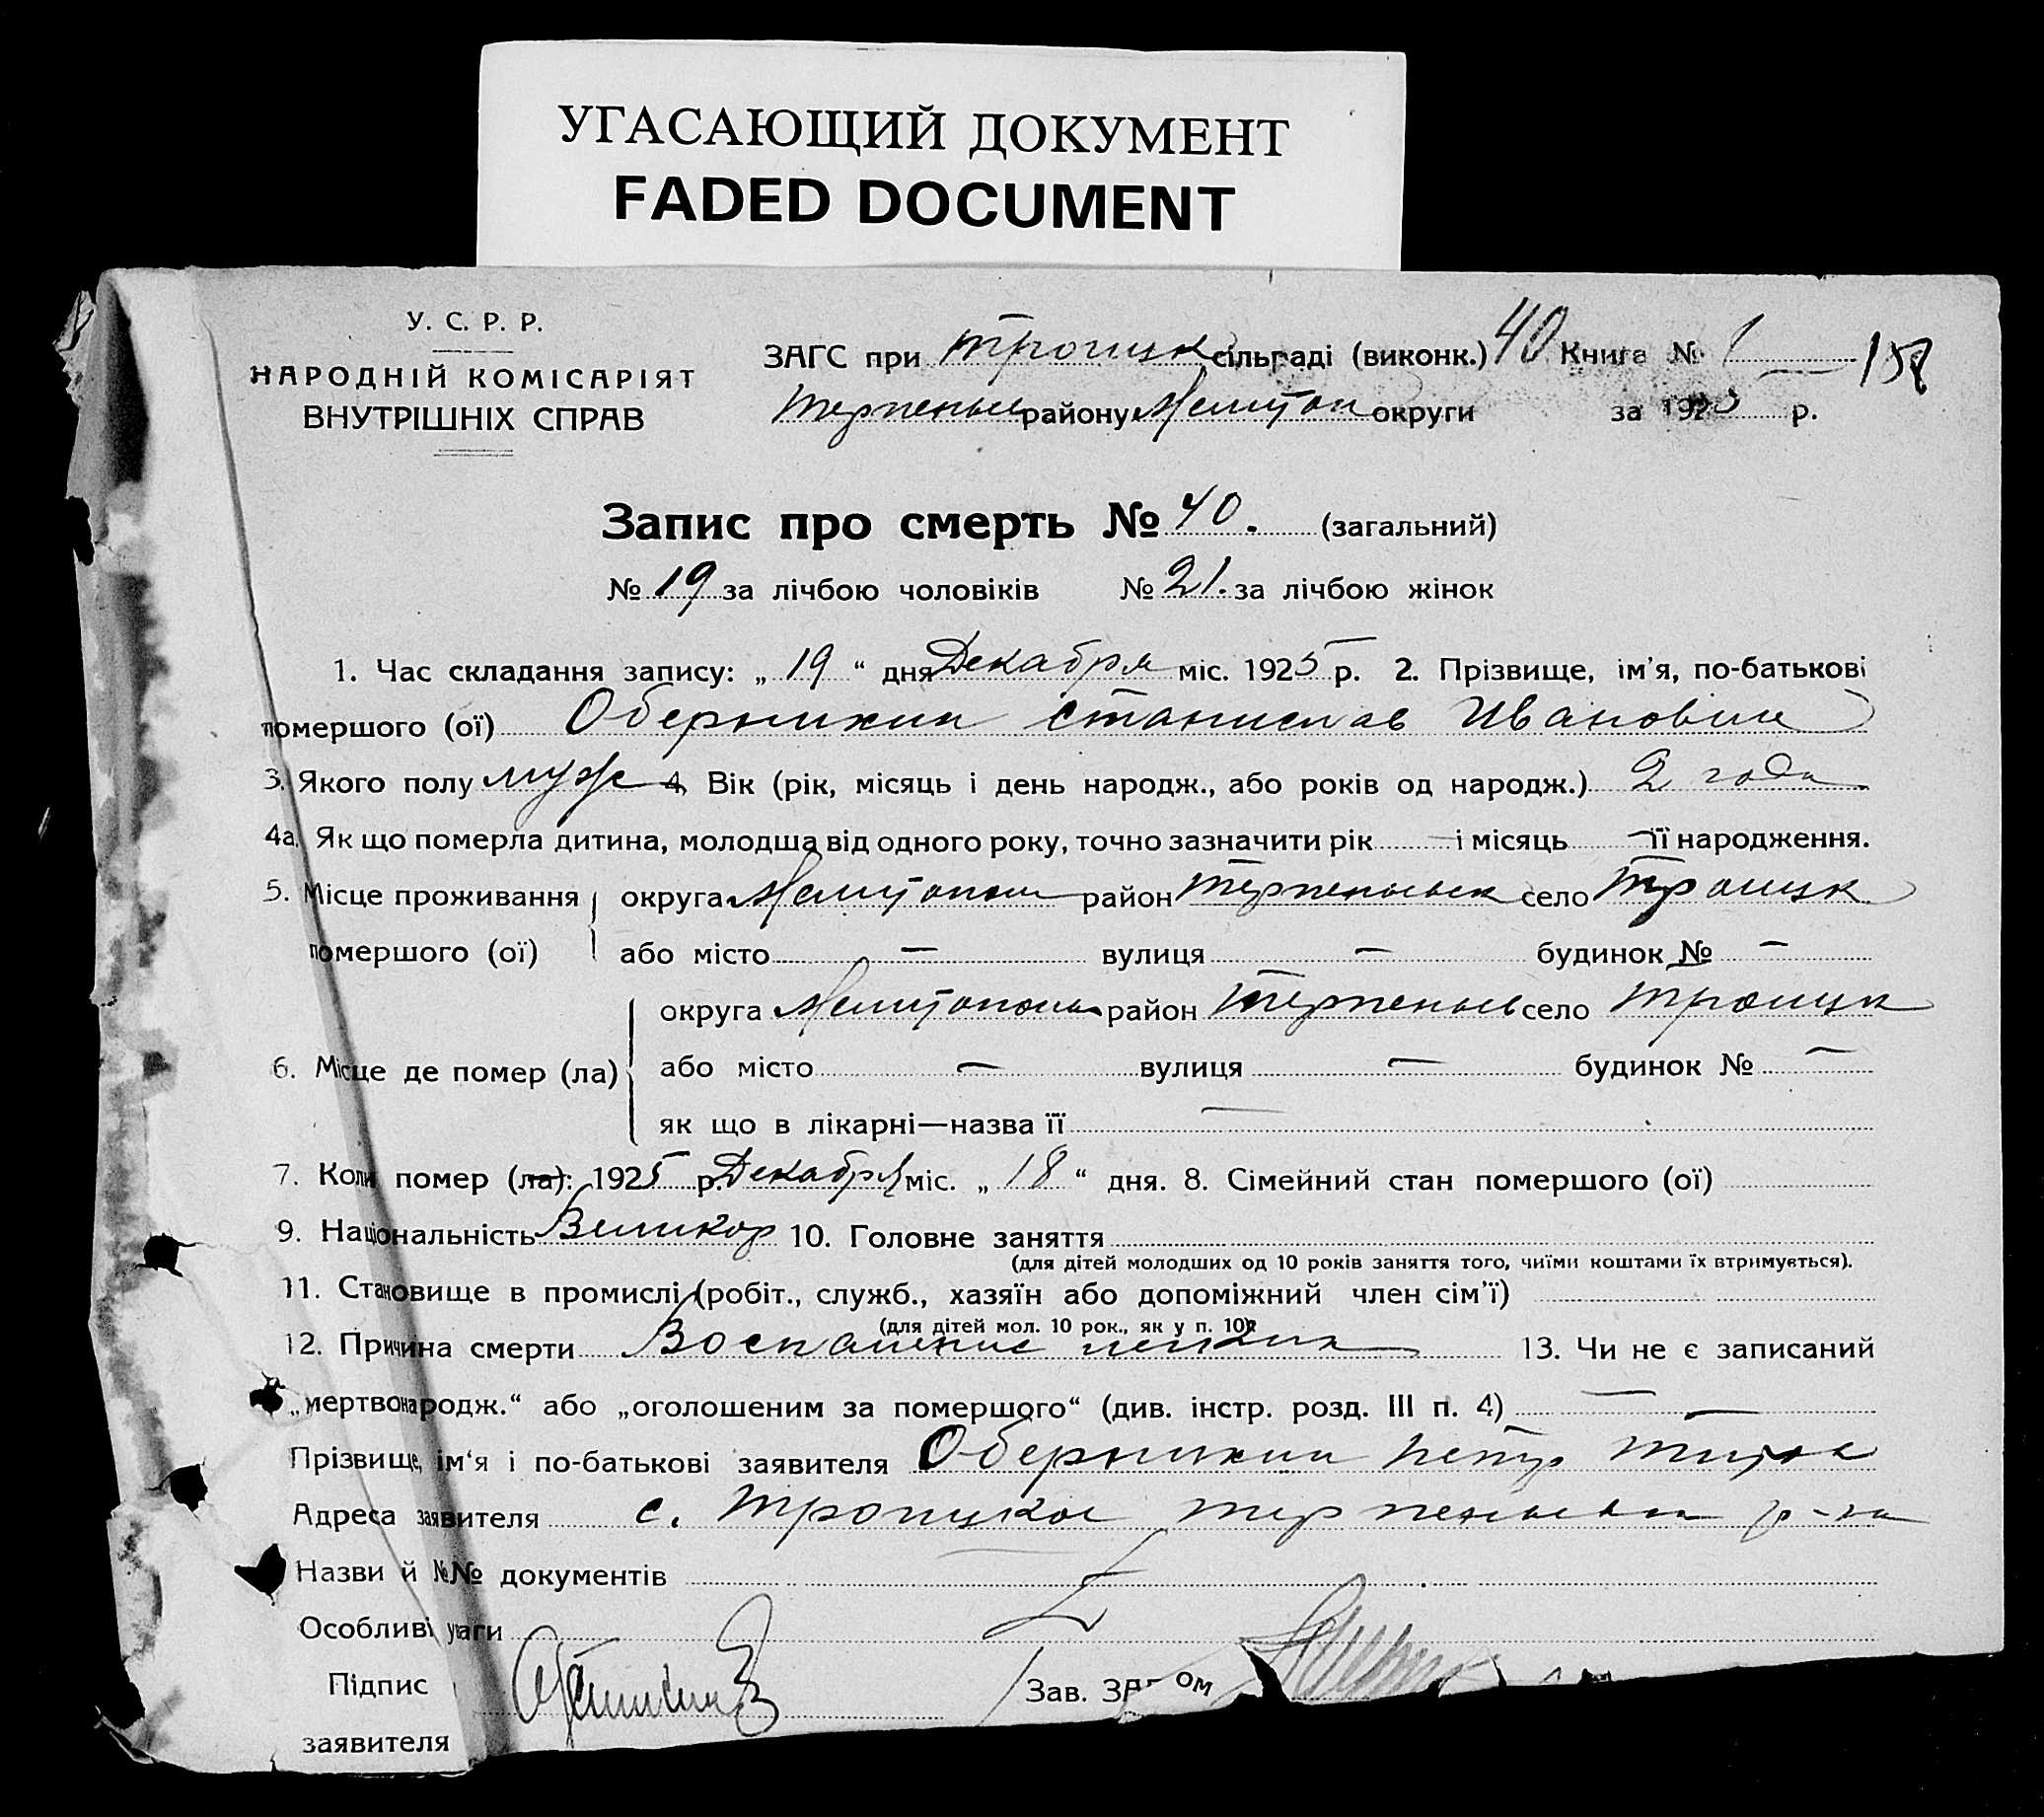 УГАСАЮЩИЙ ДОКУМЕНТ
FADED DOCUMENT
У. С. Р. Р.
НАРОДНІЙ КОМІСАРІЯТ
ВНУТРІШНІХ СПРАВ
ЗАГС при Троицк сільраді (виконк.) 40 Книга № 1
району Мелитоп округи за 1925 р.
Запис про смерть № 40. (загальний)
№ 19 за лічбою чоловіків № 21. за лічбою жінок
1. Час складання запису: „ 19 “ дня Декабря міс. 1925 р. 2. Прізвище, ім'я, по-батькові
помершого (ої) Оберникин Станислав Иванович
3. Якого полу муж 4. Вік (рік, місяць і день народж., або років од народж.) 2 года
4а. Як що померла дитина, молодша від одного року, точно зазначити рік — і місяць — її народження.
5. Місце проживання округа район село Троицк
помершого (ої) або місто — вулиця — будинок № —
округа район село Троицк
6. Місце де помер (ла)
або місто — вулиця — будинок № —
як що в лікарні—назва її —
7. Коли помер (ла): 1925 р. Декабря міс. „ 18 “ дня. 8. Сімейний стан помершого (ої)
9. Національність Великор 10. Головне заняття
(для дітей молодших од 10 років заняття того, чиїми коштами їх втримується).
11. Становище в промислі (робіт., служб., хазяїн або допоміжний член сім'ї)
(для дітей мол. 10 рок., як у п. 10)
12. Причина смерти Воспаление легких 13. Чи не є записаний
„мертвонародж.“ або „оголошеним за помершого“ (див. інстр. розд. III п. 4) —
Прізвище, ім'я і по-батькові заявителя Оберникин Петр
Адреса заявителя с. Троицкое р-на
Назви й №№ документів
Особливі уваги
Підпис
Зав. ЗАГСом
заявителя